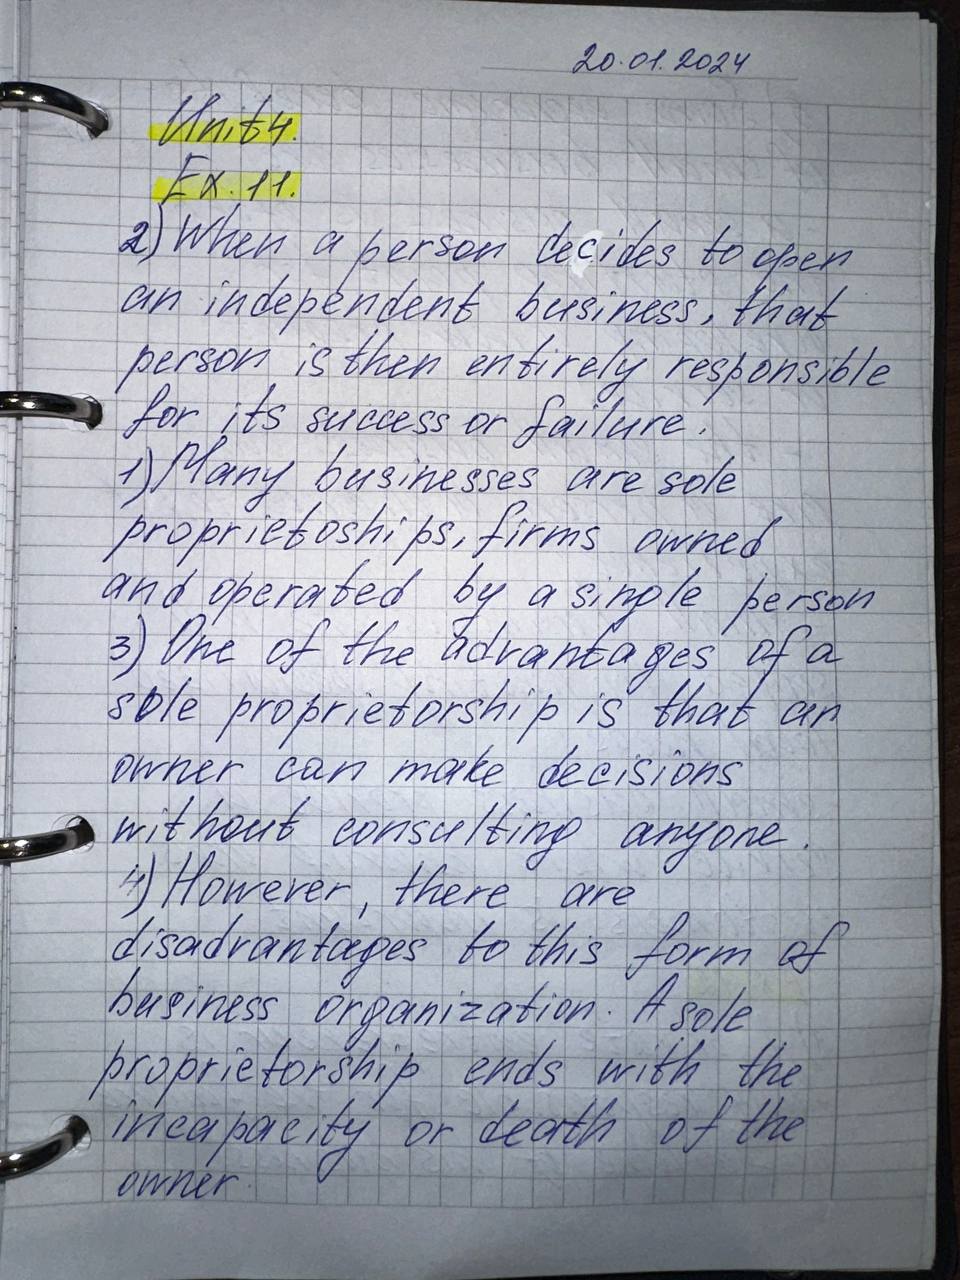 20.01.2024
Unit 4.
Ex. 11.
2) When a person decides to open
an independent business, that
person is then entirely responsible
for its success or failure.
1) Many businesses are sole
proprietoships, firms owned
and operated by a single person
3) One of the advantages of a
sole proprietorship is that an
owner can make decisions
without consulting anyone.
4) However, there are
disadvantages to this form of
business organization. A sole
proprietorship ends with the
incapacity or death of the
owner.